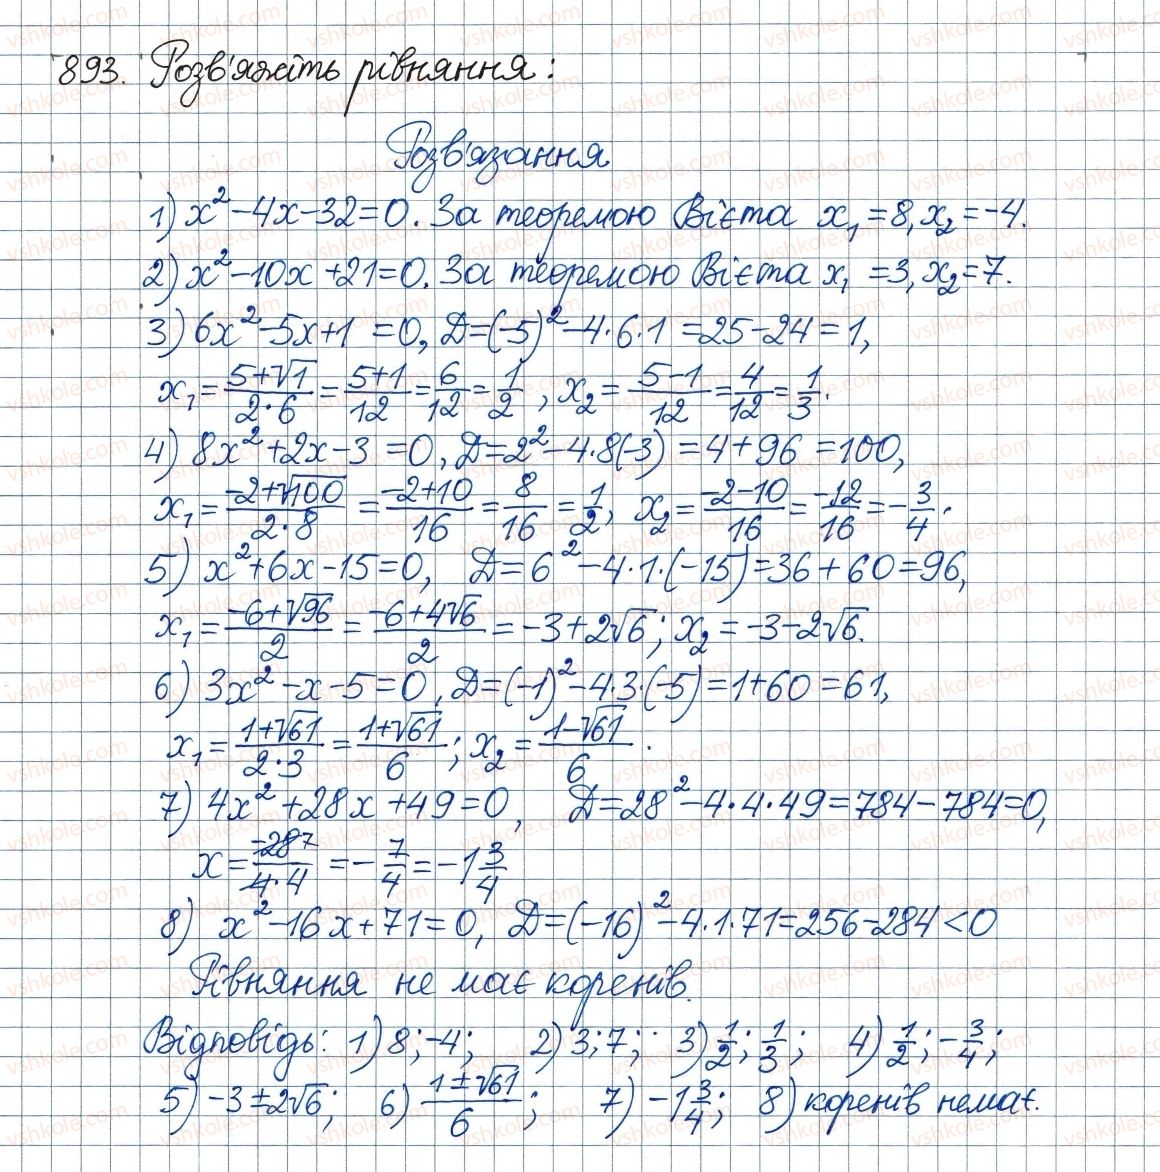 893. Розв'яжіть рівняння:
Розв'язання
1) x² - 4x - 32 = 0. За теоремою Вієта x₁ = 8, x₂ = -4.
2) x² - 10x + 21 = 0. За теоремою Вієта x₁ = 3, x₂ = 7.
3) 6x² - 5x + 1 = 0, D = (-5)² - 4·6·1 = 25 - 24 = 1,
x₁ = (5+√1)/(2·6) = (5+1)/12 = 6/12 = 1/2, x₂ = (5-1)/12 = 4/12 = 1/3.
4) 8x² + 2x - 3 = 0, D = 2² - 4·8(-3) = 4 + 96 = 100,
x₁ = (-2+√100)/(2·8) = (-2+10)/16 = 8/16 = 1/2, x₂ = (-2-10)/16 = -12/16 = -3/4.
5) x² + 6x - 15 = 0, D = 6² - 4·1·(-15) = 36 + 60 = 96,
x₁ = (-6+√96)/2 = (-6+4√6)/2 = -3+2√6; x₂ = -3-2√6.
6) 3x² - x - 5 = 0, D = (-1)² - 4·3·(-5) = 1 + 60 = 61,
x₁ = (1+√61)/(2·3) = (1+√61)/6; x₂ = (1-√61)/6.
7) 4x² + 28x + 49 = 0, D = 28² - 4·4·49 = 784 - 784 = 0,
x = -28 7/(4·4) = -7/4 = -1 3/4
8) x² - 16x + 71 = 0, D = (-16)² - 4·1·71 = 256 - 284 < 0
Рівняння не має коренів.
Відповідь: 1) 8; -4; 2) 3; 7; 3) 1/2; 1/3; 4) 1/2; -3/4;
5) -3±2√6; 6) (1±√61)/6; 7) -1 3/4; 8) коренів немає.